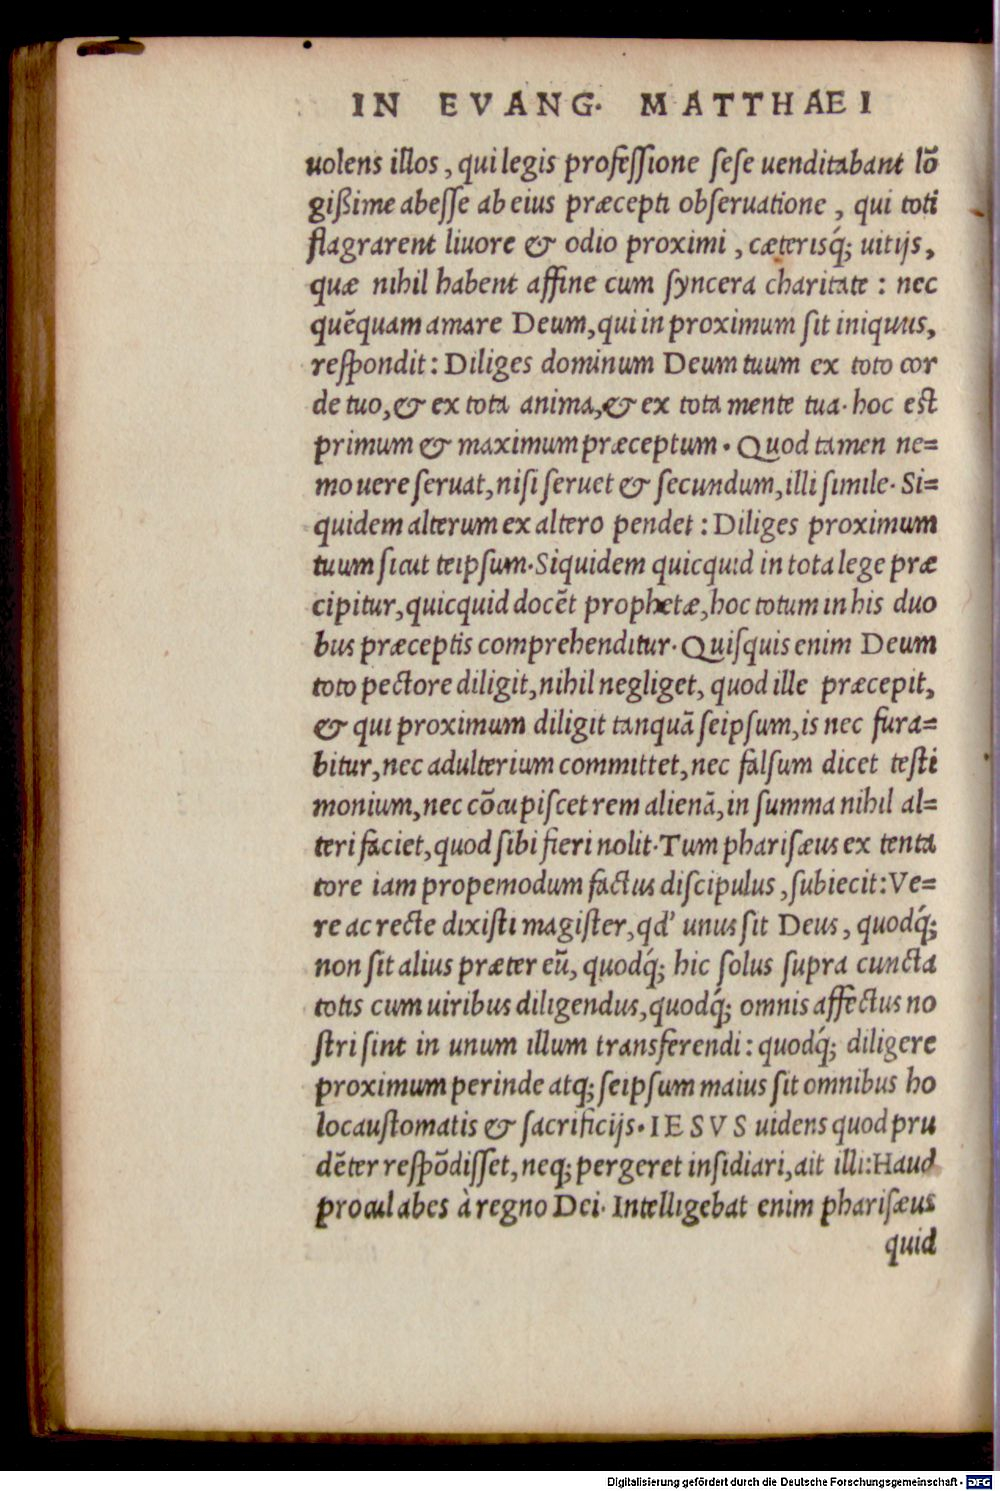 IN EVANG. MATTHAEI
uolens illos, qui legis professione sese uenditabant lō
gißime abesse ab eius præcepti obseruatione, qui toti
flagrarent liuore & odio proximi, cæterisq́; uitijs,
quæ nihil habent affine cum syncera charitate: nec
quēquam amare Deum, qui in proximum sit iniquus,
respondit: Diliges dominum Deum tuum ex toto cor
de tuo, & ex tota anima, & ex tota mente tua. hoc est
primum & maximum præceptum. Quod tamen ne=
mo uere seruat, nisi seruet & secundum, illi simile. Si=
quidem alterum ex altero pendet: Diliges proximum
tuum sicut teipsum. Siquidem quicquid in tota lege præ
cipitur, quicquid docēt prophetæ, hoc totum in his duo
bus præceptis comprehenditur. Quisquis enim Deum
toto pectore diligit, nihil negliget, quod ille præcepit,
& qui proximum diligit tanquā seipsum, is nec fura=
bitur, nec adulterium committet, nec falsum dicet testi
monium, nec cōcupiscet rem alienā, in summa nihil al=
teri faciet, quod sibi fieri nolit. Tum pharisæus ex tenta
tore iam propemodum factus discipulus, subiecit: Ve=
re ac recte dixisti magister, qd' unus sit Deus, quodq́;
non sit alius præter eū, quodq́; hic solus supra cuncta
totis cum uiribus diligendus, quodq́; omnis affectus no
stri sint in unum illum transferendi: quodq́; diligere
proximum perinde atq; seipsum maius sit omnibus ho
locaustomatis & sacrificijs. IESVS uidens quod pru
dēter respōdisset, neq; pergeret insidiari, ait illi: Haud
procul abes à regno Dei. Intelligebat enim pharisæus
quid
Digitalisierung gefördert durch die Deutsche Forschungsgemeinschaft - DFG